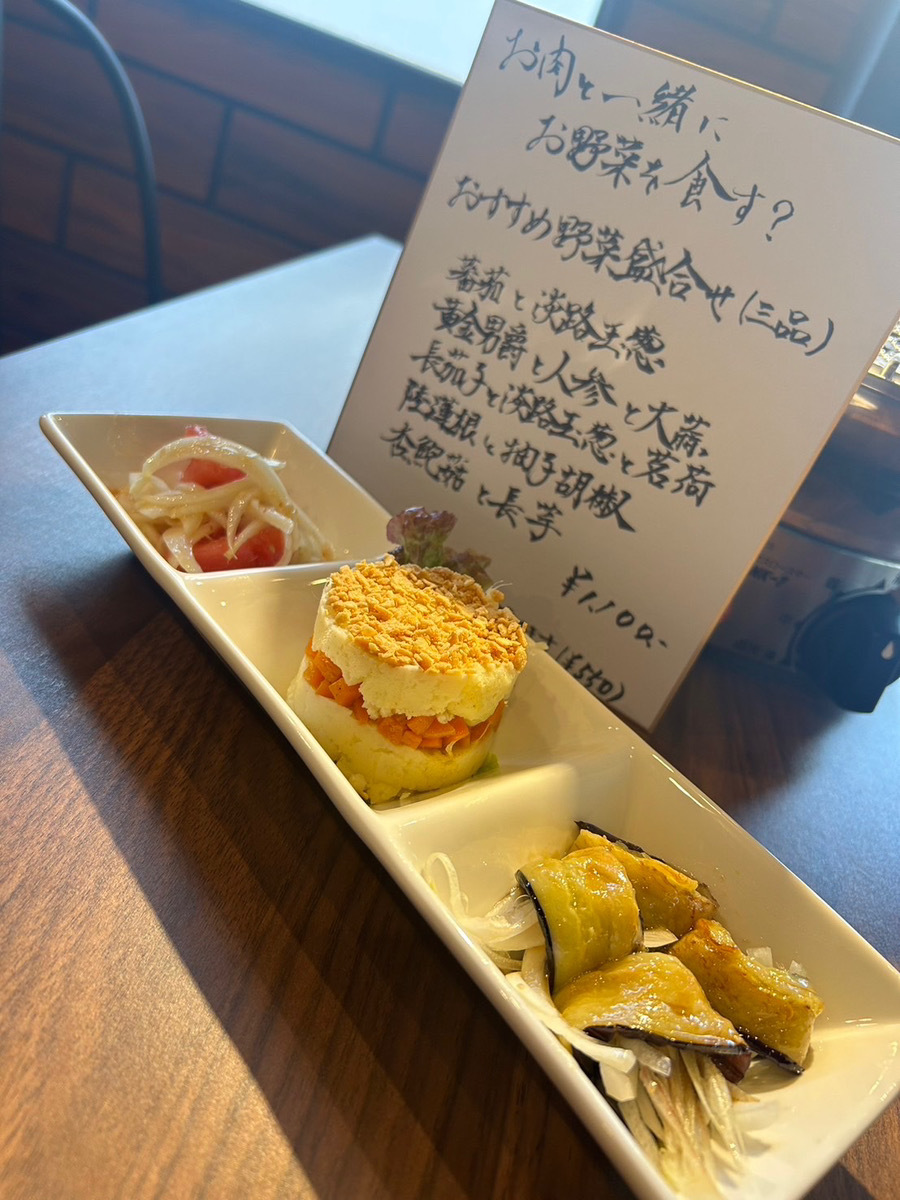 お肉と一緒に
お野菜を食す?
おすすめ野菜盛合せ(三品)
蕃茄と淡路玉葱
黄金男爵と人参と大蒜
長茄子と淡路玉葱と茗荷
陸蓮根と柚子胡椒
杏鮑茹と長芋
¥1,100-
550)